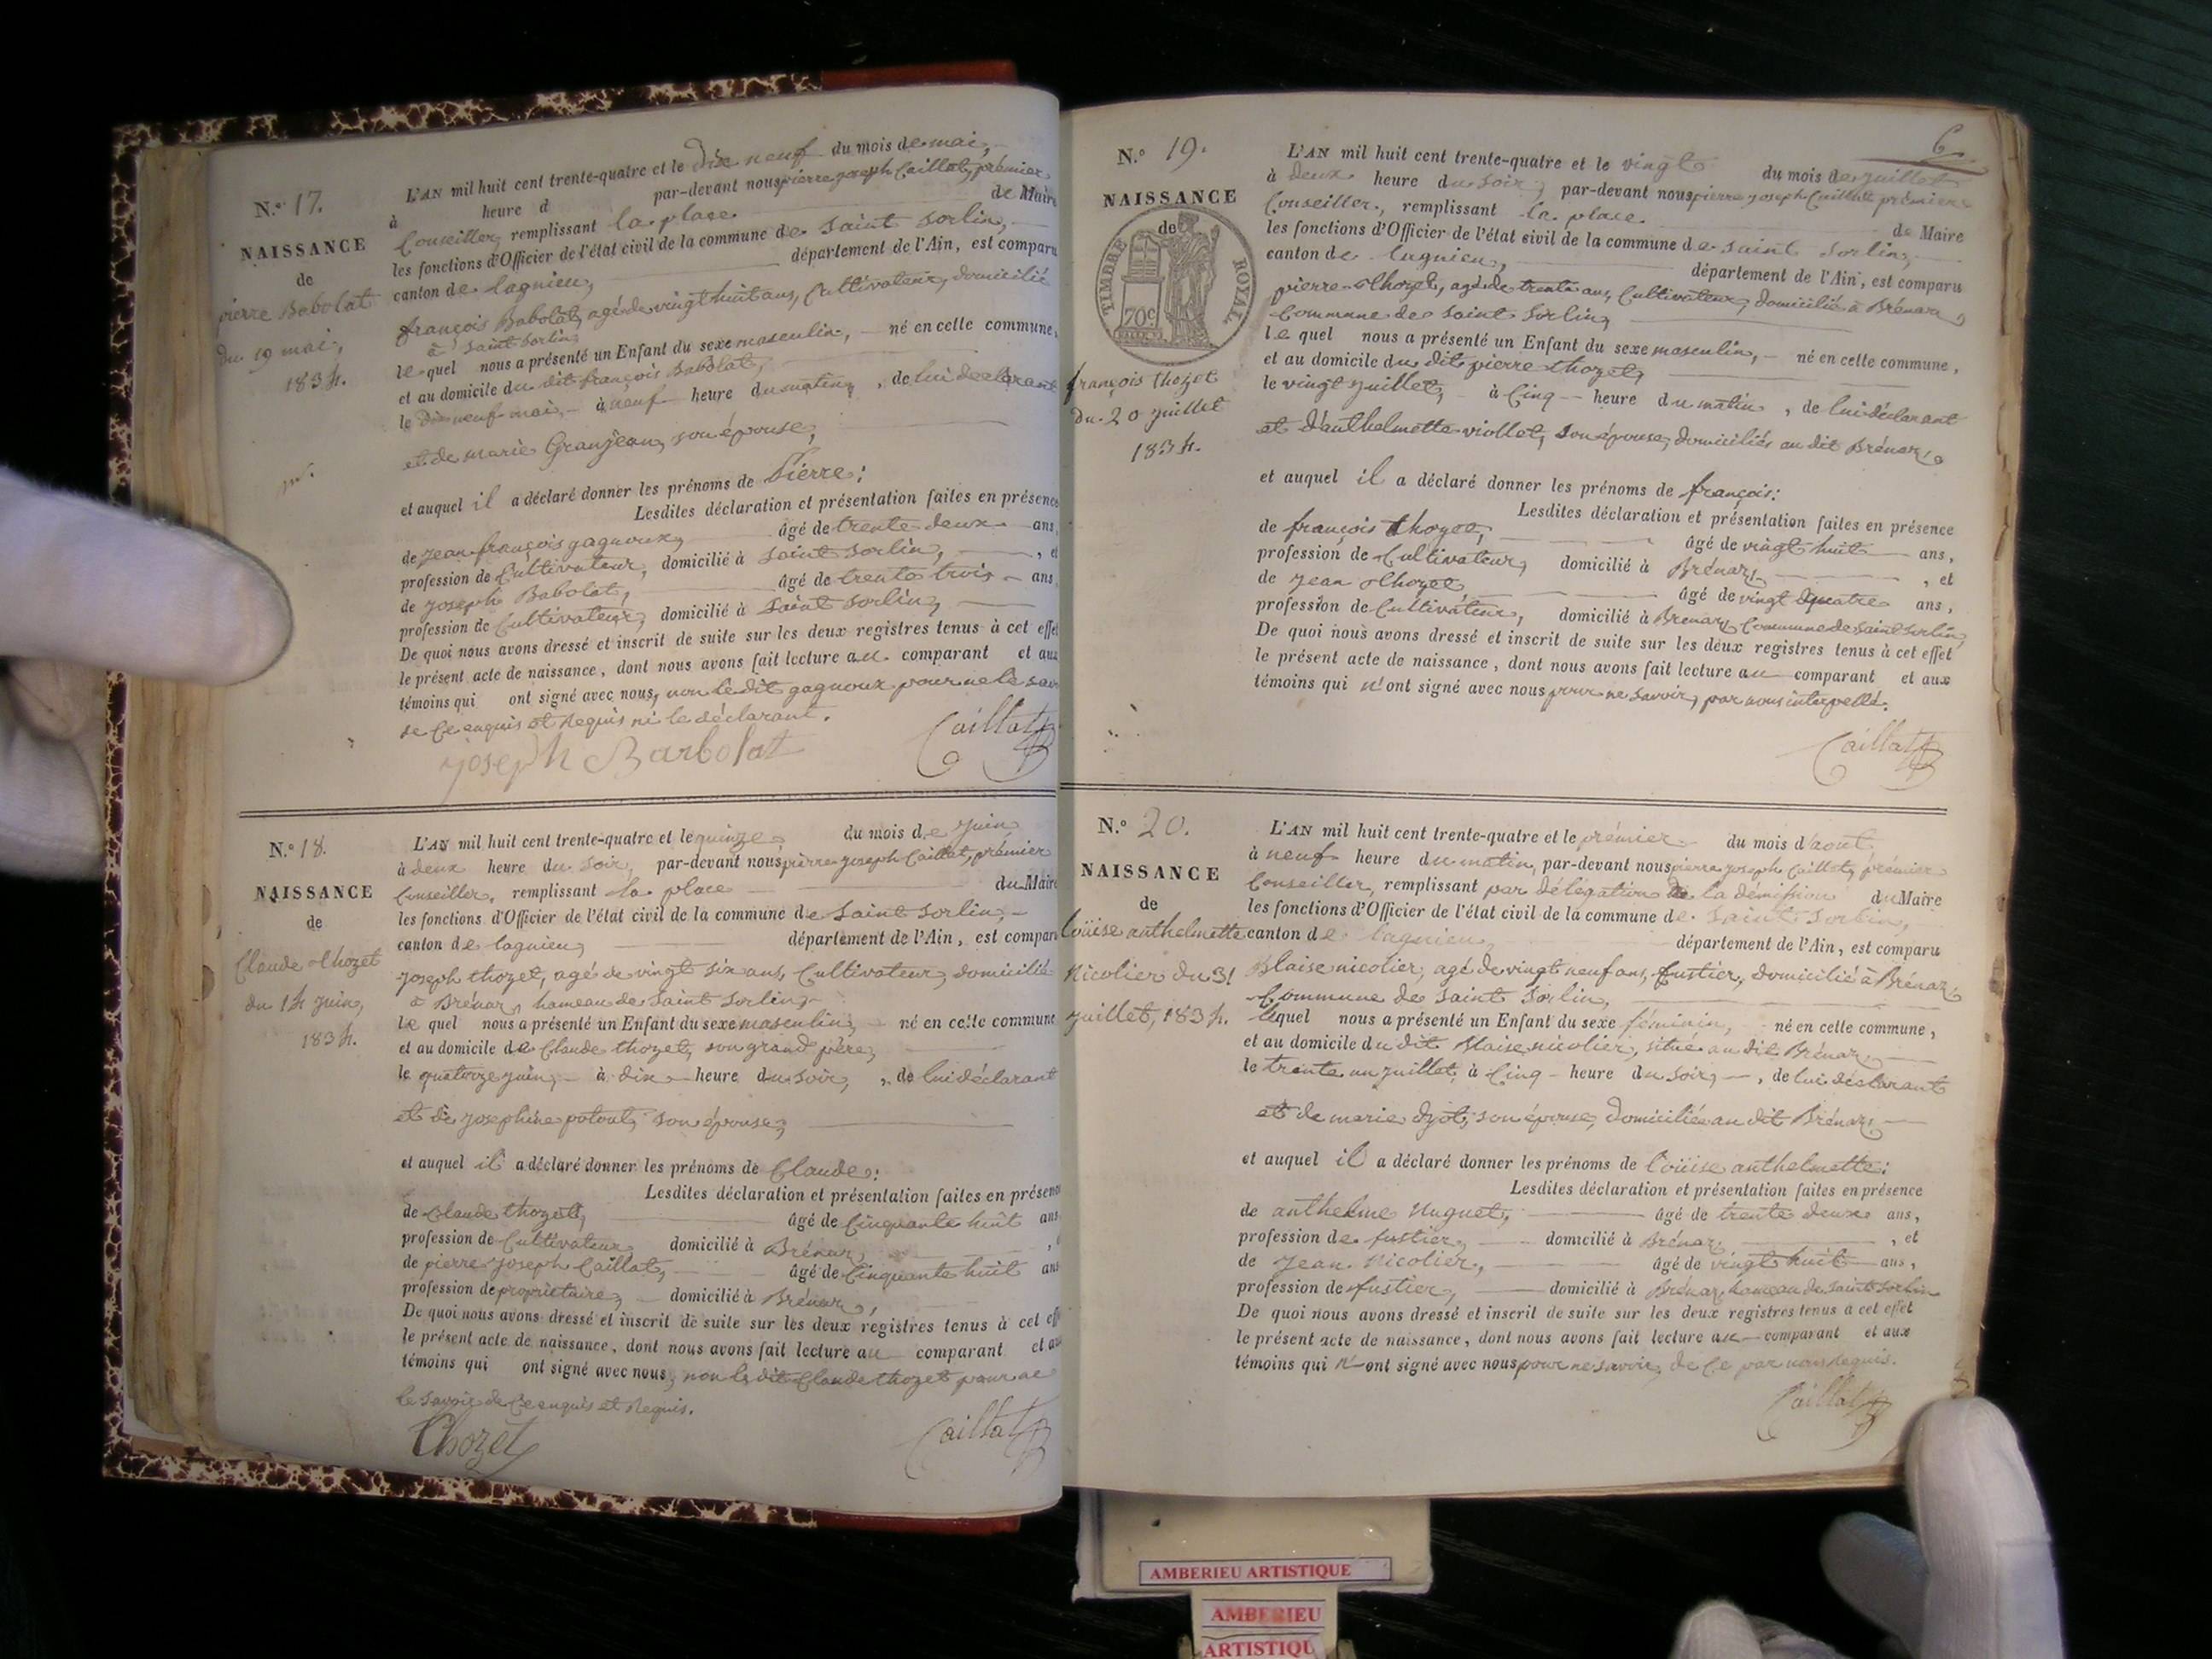 N.° 17.
NAISSANCE
de
pierre Babolat
du 19 mai,
1834.
L'AN mil huit cent trente-quatre et le dix neuf du mois de mai,
à heure d par-devant nous pierre joseph Caillat, prémier
Conseiller, remplissant la place de Maire
les fonctions d'Officier de l'état civil de la commune de Saint Sorlin,
canton de lagnieu, département de l'Ain, est comparu
françois Babolat, agé de vingt huit ans, Cultivateur, domicilié
à Saint Sorlin,
le quel nous a présenté un Enfant du sexe masculin, né en cette commune,
et au domicile du dit françois Babolat,
le dix neuf mai, à neuf heure du matin, de lui déclarant
et de marie Granjean, son épouse,
et auquel il a déclaré donner les prénoms de Pierre:
Lesdites déclaration et présentation faites en présence
de jean françois gagnoux, âgé de trente deux ans,
profession de Cultivateur, domicilié à Saint Sorlin, , et
de joseph Babolat, âgé de trente trois ans,
profession de Cultivateur, domicilié à Saint Sorlin,
De quoi nous avons dressé et inscrit de suite sur les deux registres tenus à cet effet
le présent acte de naissance, dont nous avons fait lecture au comparant et aux
témoins qui ont signé avec nous, non le dit gagnoux pour ne le savoir
de Ce enquis et Requis ni le déclarant.
joseph Barbolat Caillat
N.° 18.
NAISSANCE
de
Claude thozet
du 14 juin,
1834.
L'AN mil huit cent trente-quatre et le quinze du mois de juin
à deux heure du soir, par-devant nous pierre joseph Caillat, prémier
Conseiller, remplissant la place du Maire
les fonctions d'Officier de l'état civil de la commune de Saint Sorlin,
canton de lagnieu, département de l'Ain, est comparu
joseph thozet, agé de vingt six ans, Cultivateur, domicilié
à Brénaz, hameau de Saint Sorlin,
le quel nous a présenté un Enfant du sexe masculin, né en cette commune
et au domicile de Claude thozet, son grand père,
le quatorze juin, à dix heure du soir, de lui déclarant
et de josephine son épouse,
et auquel il a déclaré donner les prénoms de Claude:
Lesdites déclaration et présentation faites en présence
de Claude thozet, âgé de Cinquante huit ans
profession de Cultivateur, domicilié à Brénaz,
de pierre joseph Caillat, âgé de Cinquante huit ans
profession de propriétaire, domicilié à Brénaz,
De quoi nous avons dressé et inscrit de suite sur les deux registres tenus à cet eff
le présent acte de naissance, dont nous avons fait lecture au comparant et aux
témoins qui ont signé avec nous, non le dit Claude thozet pour ne
le savoir de Ce enquis et Requis.
Thozet Caillat
6
N.° 19.
NAISSANCE
de
TIMBRE ROYAL
70c
françois thozet
du 20 juillet
1834.
L'AN mil huit cent trente-quatre et le vingt du mois de juillet
à deux heure du soir, par-devant nous pierre joseph Caillat prémier
Conseiller, remplissant la place de Maire
les fonctions d'Officier de l'état civil de la commune de Saint Sorlin,
canton de lagnieu, département de l'Ain, est comparu
pierre thozet, agé de trente ans, Cultivateur, domicilié à Brénaz,
Commune de Saint Sorlin,
le quel nous a présenté un Enfant du sexe masculin, né en cette commune,
et au domicile du dit pierre thozet,
le vingt juillet, à Cinq heure du matin, de lui déclarant
et d'anthelmette viollet, son épouse, domiciliés au dit Brénaz,
et auquel il a déclaré donner les prénoms de françois:
Lesdites déclaration et présentation faites en présence
de françois thozet, âgé de vingt huit ans,
profession de Cultivateur, domicilié à Brénaz, , et
de jean thozet, âgé de vingt quatre ans,
profession de Cultivateur, domicilié à Brénaz, Commune de Saint Sorlin,
De quoi nous avons dressé et inscrit de suite sur les deux registres tenus à cet effet
le présent acte de naissance, dont nous avons fait lecture au comparant et aux
témoins qui n'ont signé avec nous pour ne savoir, par nous interpellé.
Caillat
N.° 20.
NAISSANCE
de
loüise anthelmette
Nicolier du 31
juillet, 1834.
L'AN mil huit cent trente-quatre et le prémier du mois d'aout
à neuf heure du matin, par-devant nous pierre joseph Caillat, prémier
Conseiller, remplissant par délégation de la démission du Maire
les fonctions d'Officier de l'état civil de la commune de Saint Sorlin,
canton de lagnieu, département de l'Ain, est comparu
Blaise nicolier, agé de vingt neuf ans, fustier, domicilié à Brénaz,
Commune de Saint Sorlin,
lequel nous a présenté un Enfant du sexe féminin, né en cette commune,
et au domicile du dit Blaise nicolier, situé au dit Brénaz,
le trente un juillet, à Cinq heure du soir, , de lui déclarant
et de marie son épouse, domiciliés au dit Brénaz,
et auquel il a déclaré donner les prénoms de loüise anthelmette:
Lesdites déclaration et présentation faites en présence
de anthelme Huguet, âgé de trente deux ans,
profession de fustier, domicilié à Brénaz , et
de Jean Nicolier, âgé de vingt huit ans,
profession de fustier, domicilié à Brénaz, hameau de Saint Sorlin
De quoi nous avons dressé et inscrit de suite sur les deux registres tenus à cet effet
le présent acte de naissance, dont nous avons fait lecture au comparant et aux
témoins qui n'ont signé avec nous pour ne savoir, de Ce par nous Requis.
Caillat
AMBERIEU ARTISTIQUE
AMBERIEU
ARTISTIQU